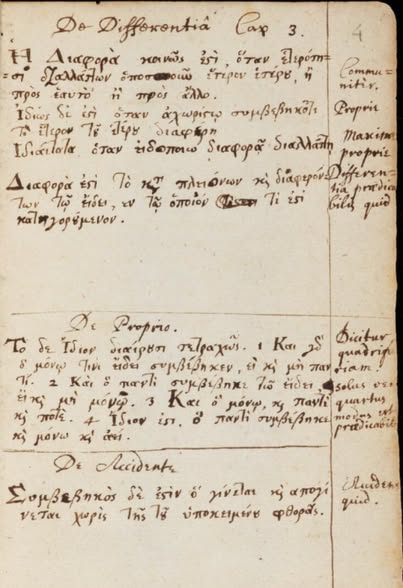 De Differentiâ Cap 3.
4
Ἡ Διαφορὰ κοινῶς ἐστὶ, ὅταν ἑτερότη-
τι διαλλάττων ὁποσοιοῦν ἕτερον ἑτέρου, ἢ
πρὸς ἑαυτὸ ἢ πρὸς ἄλλο.
Commu-
niter.
Ἰδίως δέ ἐστι ὅταν ἀχωρίστῳ συμβεβηκότι
τὸ ἕτερον τοῦ ἑτέρου διαφέρῃ
Proprie
Ἰδιαίτατα ὅταν εἰδοποιῷ διαφορᾷ διαλλάττῃ
Maxime
proprie
Διαφορὰ ἐστὶ τὸ κατὰ πλειόνων καὶ διαφερόν-
των τῷ εἴδει, ἐν τῷ ὁποῖόν τι ἐστὶ
κατηγορούμενον.
Differen-
tia prædica-
bilis quid
De Proprio.
Τὸ δὲ ἴδιον διαιροῦσι τετραχῶς. 1 Καὶ γὰρ
ὃ μόνῳ τινι εἴδει συμβέβηκεν, εἰ καὶ μὴ παν
τί. 2 Καὶ ὃ παντὶ συμβέβηκε τῷ εἴδει,
εἰ καὶ μὴ μόνῳ. 3 Καὶ ὃ μόνῳ, καὶ παντὶ
καὶ ποτὲ. 4 Ἴδιον ἐστι. ὃ παντὶ συμβέβηκε
καὶ μόνῳ καὶ ἀεί.
Dicitur
quadrifa
riam.
solus ve
quartus
modus est
prædicabilis
De Accidente
Συμβεβηκὸς δέ ἐστιν ὃ γίνεται καὶ ἀπογί
νεται χωρὶς τῆς τοῦ ὑποκειμένου φθορᾶς.
Accidens
quid.